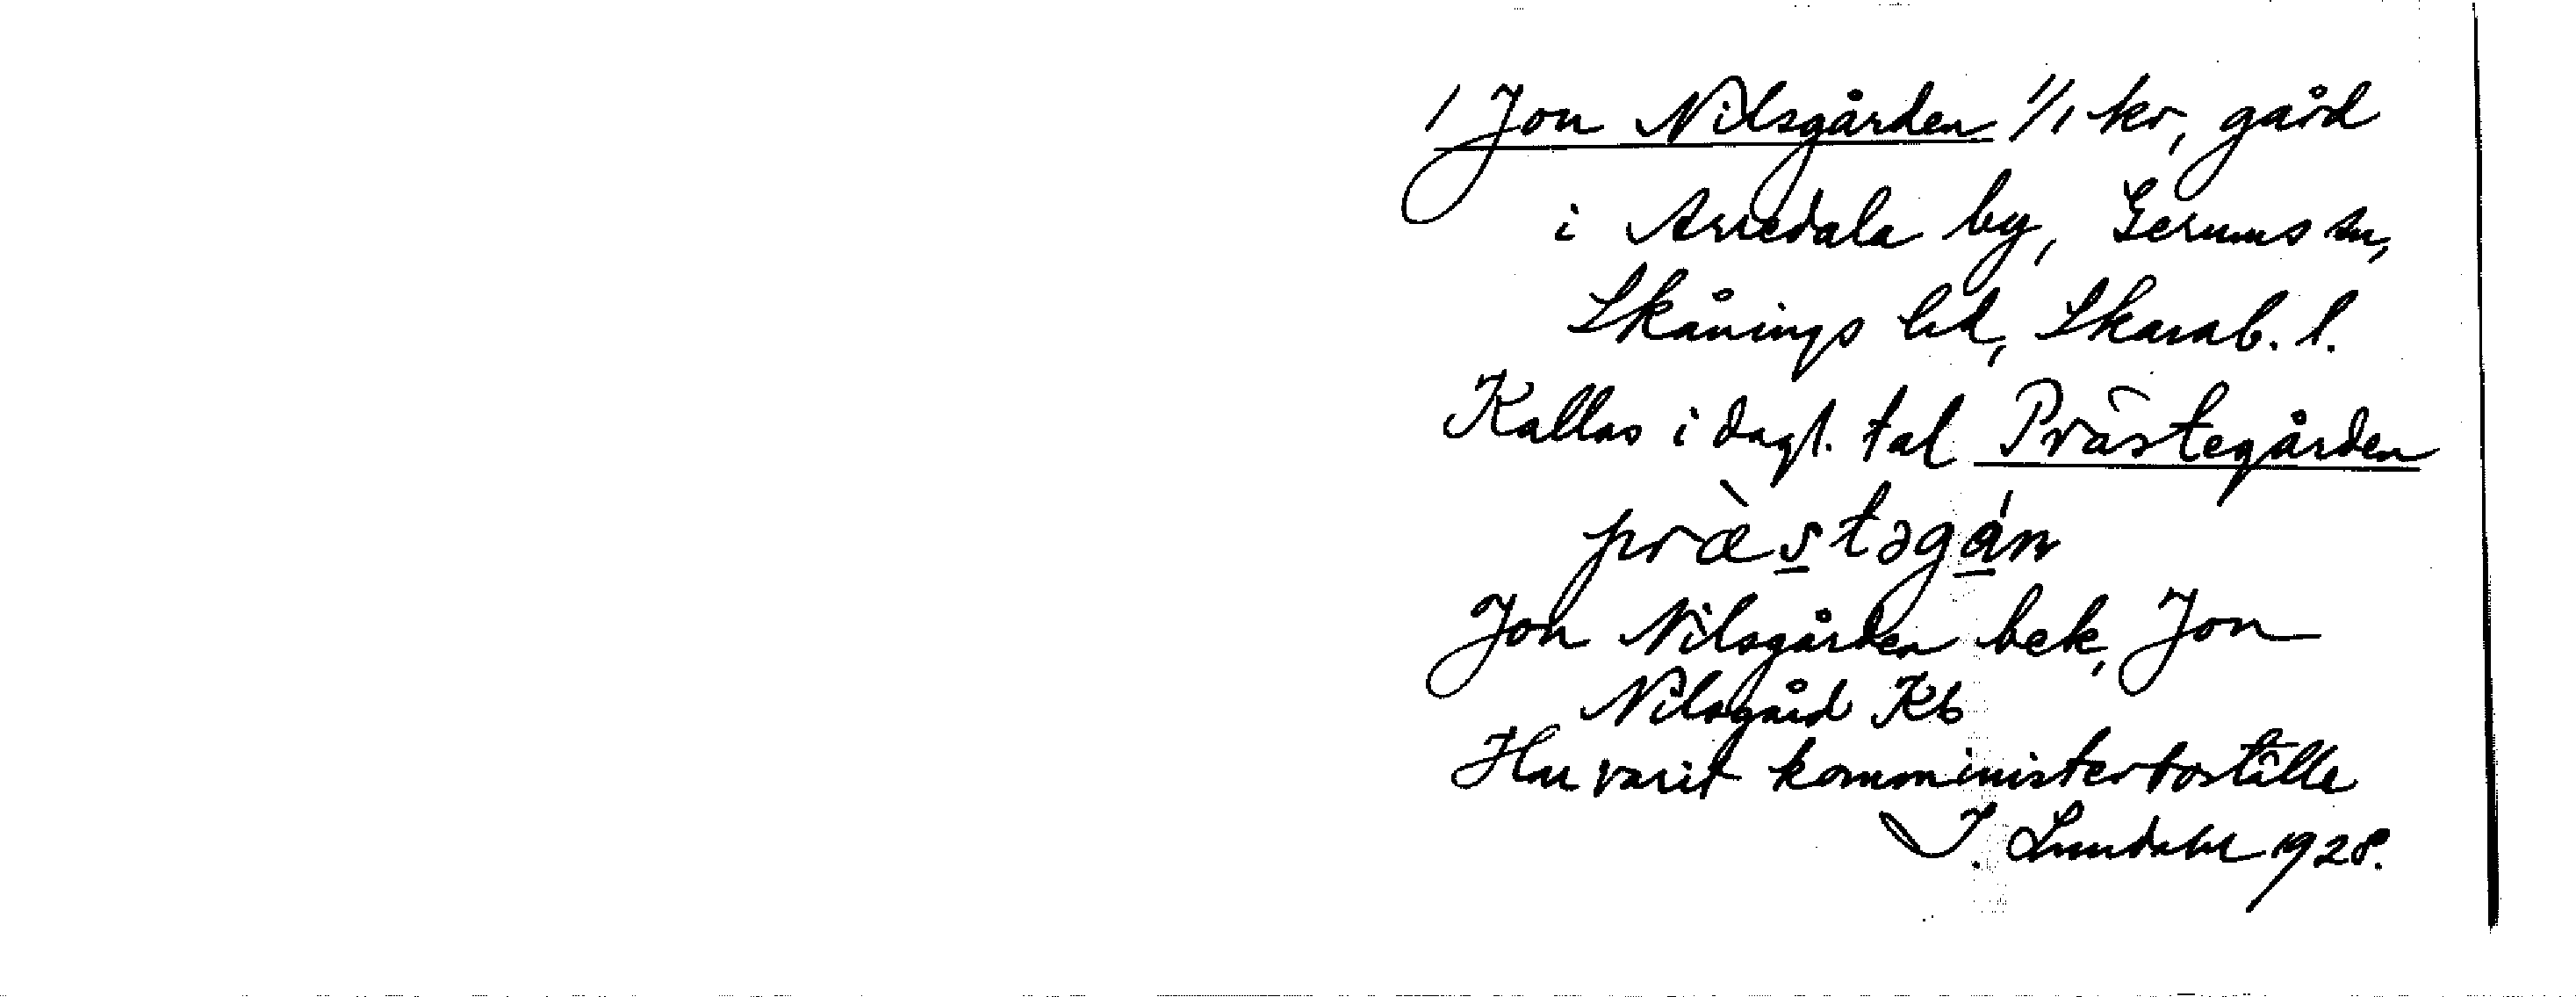 1 Jon Nilsgården 1/1 kr, gård
i Arvedala by, Gerums sn,
Skånings hd, Skarab. l.
Kallas i dagl. tal Prästegården
præ̀stəgán
Jon Nilsgården bek, Jon
Nilsgård Kb
Har varit komministerboställe
I. Lundahl 1928.